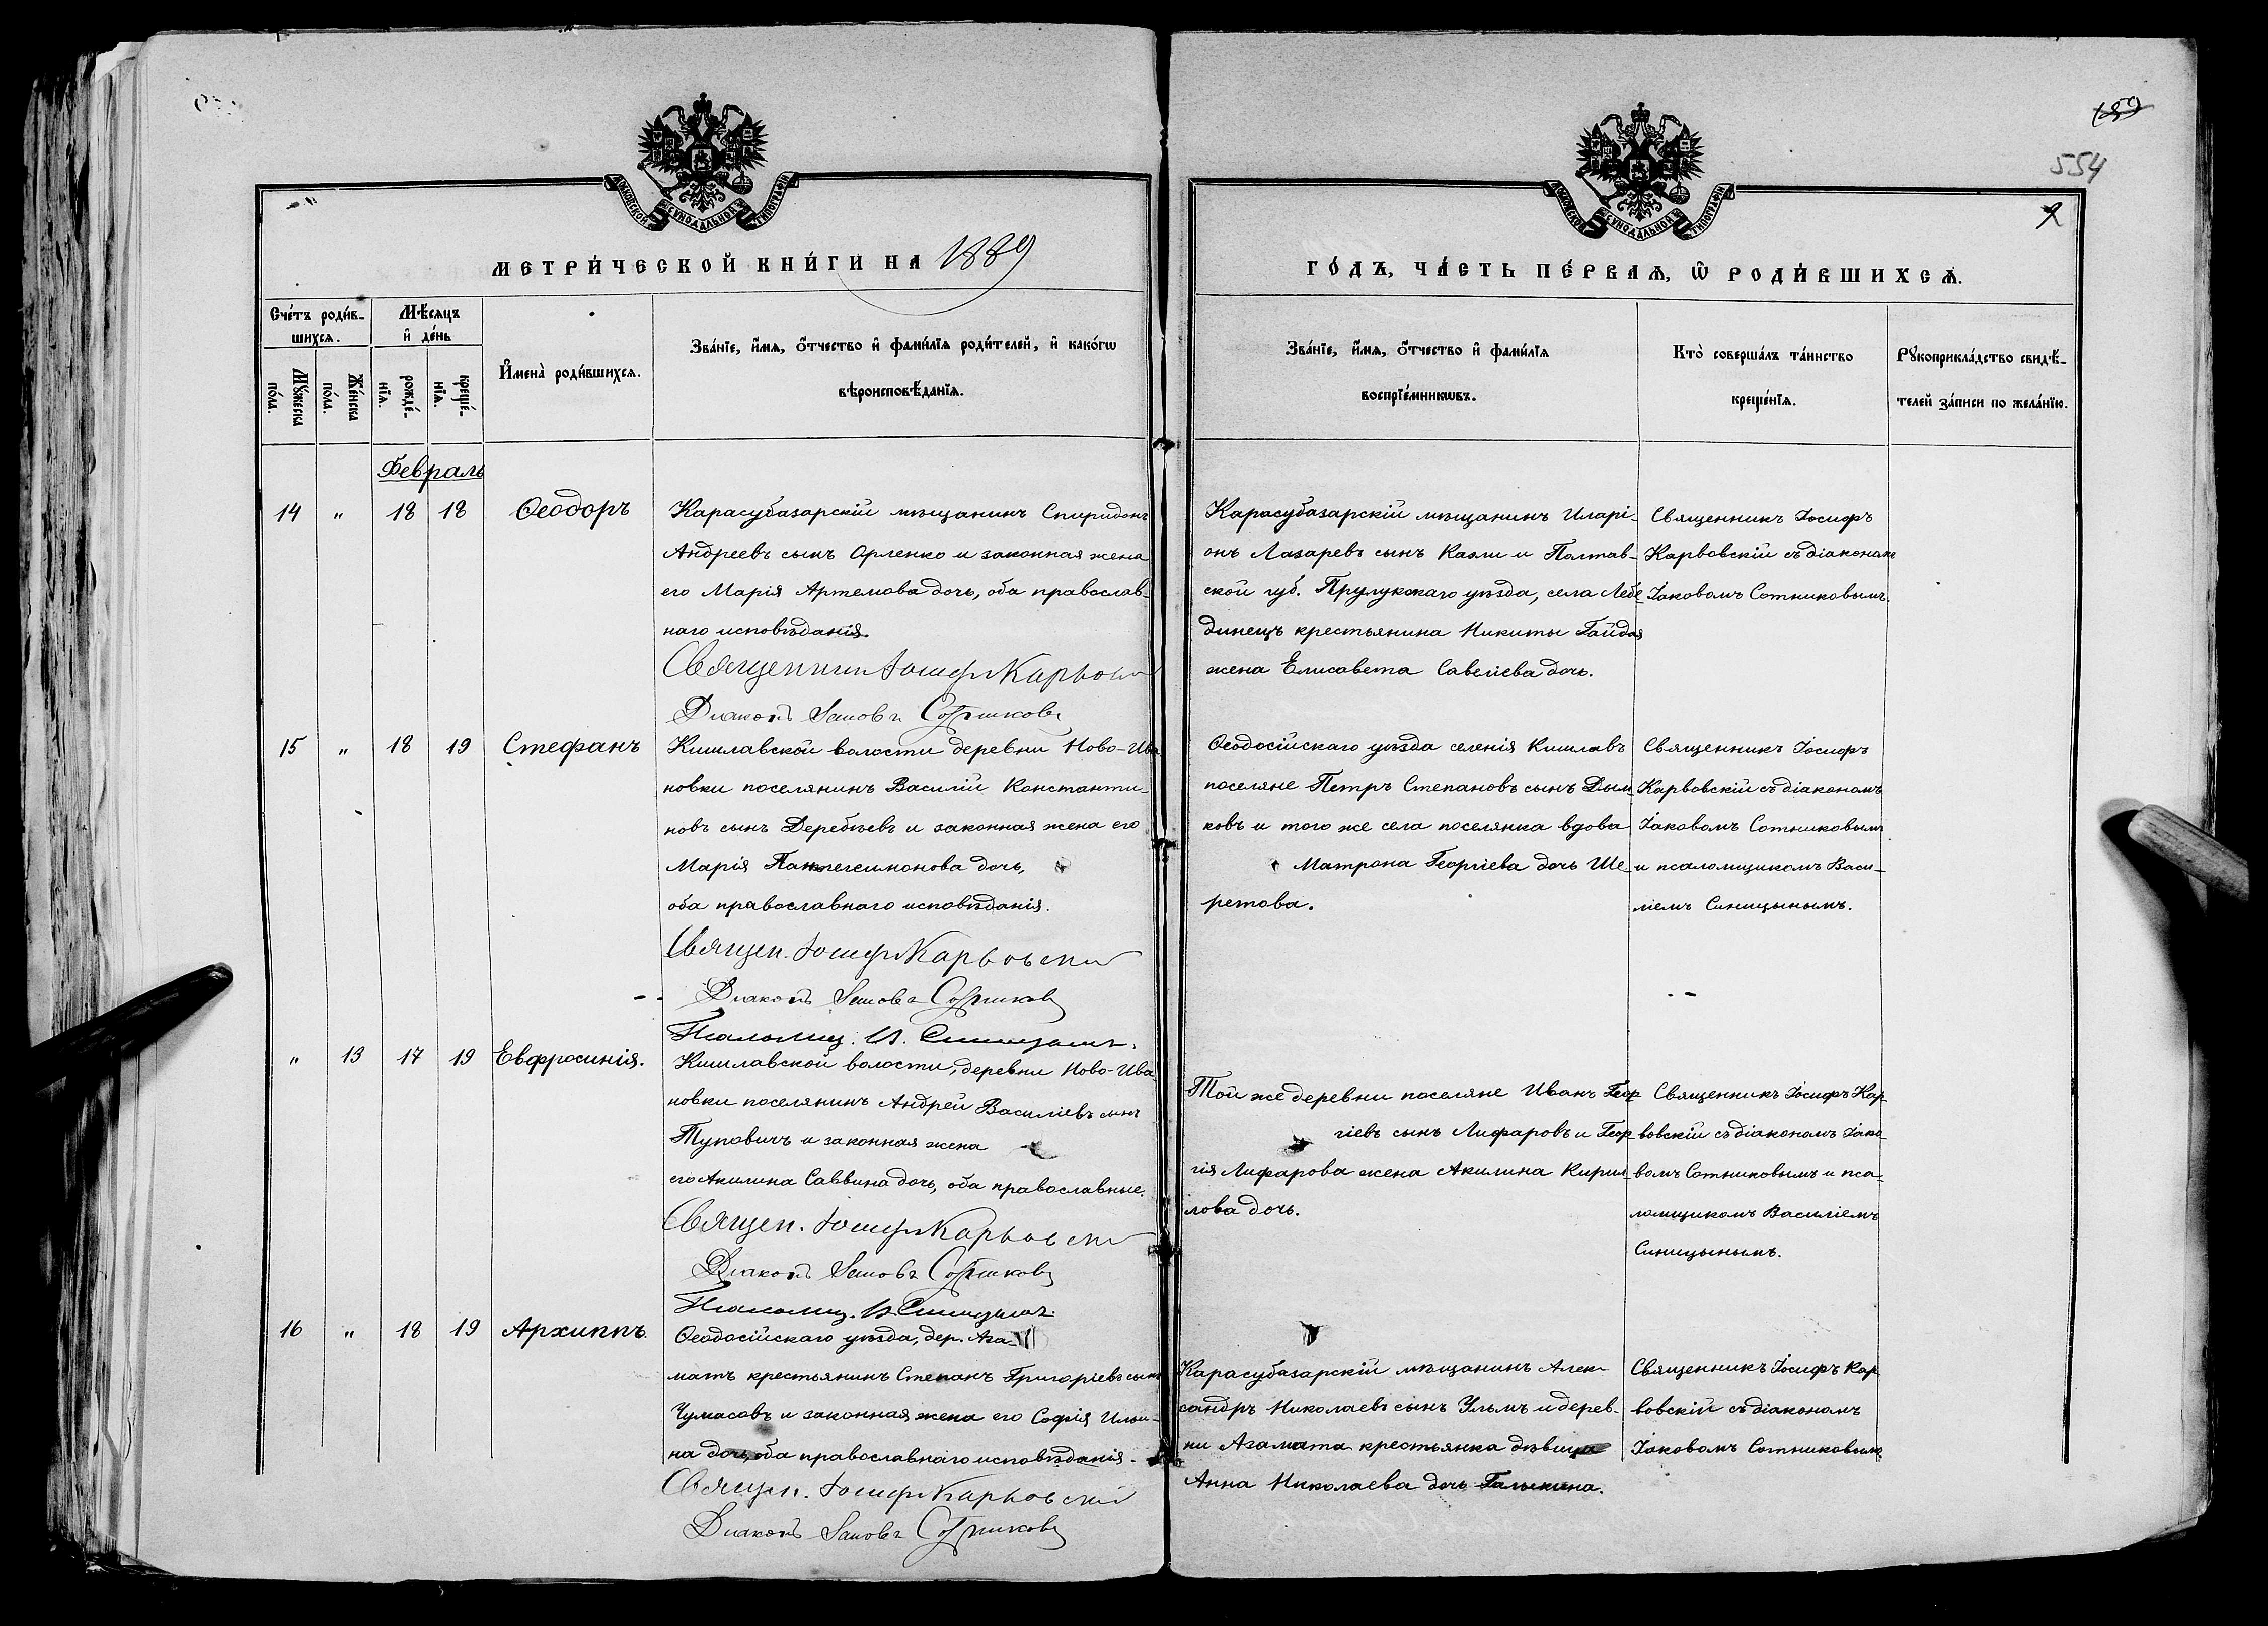 159
554
МОСКОВСКОЙ СѴНОДАЛЬНОЙ ТИПОГРАФІИ
МОСКОВСКОЙ СѴНОДАЛЬНОЙ ТИПОГРАФІИ
МЕТРИ́ЧЕСКОЙ КНИ́ГИ НА 1889
ГО́ДЪ, ЧА́СТЬ ПЕ́РВАЯ, Ѡ РОДИ́ВШИХСЯ.
Сче́тъ роди́в-
шихся.
Мѣ́сяцъ
и҆ де́нь
Мꙋ́жеска
по́ла.
Же́нска
по́ла.
рожде́-
нїя.
креще́-
нїя.
И҆мена̀ роди́вшихся.
Зва́нїе, и҆́мя, ѻ҆́тчество и҆ фами́лїя роди́телей, и҆ како́гѡ
вѣроисповѣ́данїя.
Зва́нїе, и҆́мя, ѻ҆́тчество и҆ фами́лїя
воспрїе́мникѡвъ.
Кто̀ соверша́лъ та́инство
креще́нїя.
Рꙋкоприкла́дство свидѣ́-
телей за́писи по жела́нїю.
Февраль
14 " 18 18 Ѳеодоръ
Карасубазарскій мѣщанинъ Спиридонъ
Андреевъ сынъ Орленко и законная жена
его Марія Артемова дочь, оба православ-
наго исповѣданія.
Священник Іосиф Карвовскій
Діаконъ Іаковъ Сотниковъ
Карасубазарскій мѣщанинъ Иларі-
онъ Лазаревъ сынъ Казли и Полтав-
ской губ. Прулукскаго уѣзда, села Лебе-
динецъ крестьянина Никиты Гайдая
жена Елисавета Савеліева дочь.
Священникъ Іосифъ
Карвовскій съ діакономъ
Іаковомъ Сотниковымъ.
15 " 18 19 Стефанъ
Кишлавской волости деревни Ново-Ива
новки поселянинъ Василій Константи-
новъ сынъ Деребѣевъ и законная жена его
Марія Пантелеимонова дочь,
оба православнаго исповѣданія.
Священ. Іосиф Карвовскій
Діаконъ Іаковъ Сотниковъ
Псаломщ. В. Синицынъ.
Ѳеодосійскаго уѣзда селенія Кишлавъ
поселяне Петръ Степановъ сынъ Дым-
ковъ и того же села поселянка вдова
Матрона Георгіева дочь Ше-
ретова.
Священникъ Іосифъ
Карвовскій съ діакономъ
Іаковомъ Сотниковымъ
и псаломщикомъ Васи-
ліемъ Синицынымъ.
" 13 17 19 Евфросинія.
Кишлавской волости, деревни Ново-Ива
новки поселянинъ Андрей Василіевъ сынъ
Туповичъ и законная жена
его Акилина Саввина дочь, оба православные.
Священ. Іосиф Карвовскій
Діаконъ Іаковъ Сотниковъ
Псаломщ. В. Синицынъ.
Той же деревни поселяне Иванъ Геор-
гіевъ сынъ Лифаровъ и Геор-
гія Лифарова жена Акилина Кирил-
лова дочь.
Священникъ Іосифъ Кар-
вовскій съ діакономъ Іако-
вомъ Сотниковымъ и пса-
ломщикомъ Василіемъ
Синицынымъ.
16 " 18 19 Архиппъ.
Ѳеодосійскаго уѣзда, дер. Аза-
матъ крестьянинъ Степанъ Григоріевъ сынъ
Чумасовъ и законная жена его Софія Ильи-
на дочь, оба православнаго исповѣданія.
Священ. Іосиф Карвовскій
Діаконъ Іаковъ Сотниковъ
Карасубазарскій мѣщанинъ Алек-
сандръ Николаевъ сынъ Ульмъ и дерев-
ни Азамата крестьянка дѣвица
Анна Николаева дочь Галыкина.
Священникъ Іосифъ Кар
вовскій съ діакономъ
Іаковомъ Сотниковымъ